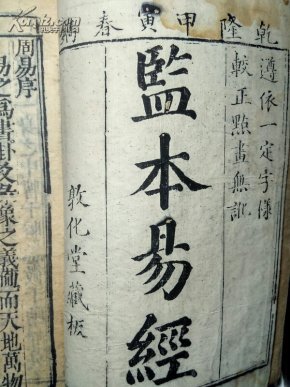 乾隆甲寅春鐫
遵依一定字樣
較正點畫無訛
監本易經
敦化堂藏板
周易序
易之為書卦爻彖象之義備而天地萬物